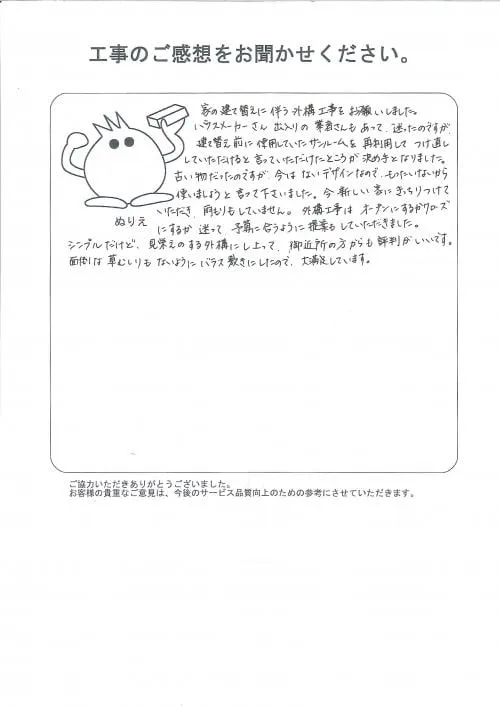 工事のご感想をお聞かせください。
家の建て替えに伴う外構工事をお願いしました。
ハウスメーカーさん出入りの業者さんもあって、迷ったのですが、
建て替え前に使用していたサンルームを再利用してつけ直し
していただけると言っていただけたところが決め手となりました。
古い物だったのですが、今はないデザインなので、もったいないから
使いましょうと言って下さいました。今新しい家にきっちりつけて
いただき、雨もりもしていません。外構工事はオープンにするかクローズ
にするか迷って、予算に合うように提案もしていただきました。
シンプルだけど、見栄えのする外構に仕上って、御近所の方からも評判がいいです。
面倒な草むしりもないようにバラス敷きにしたので、大満足しています。
ぬりえ
ご協力いただきありがとうございました。
お客様の貴重なご意見は、今後のサービス品質向上のための参考にさせていただきます。